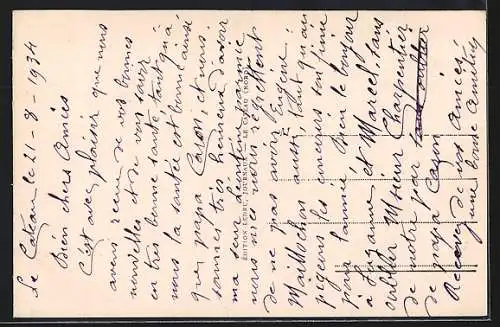 Le Cateau le 21-8-1934
Bien chers Amies
C'est avec plaisir que nous
avons recue de vos bonnes
nouvelles et de vous savoir
en très bonne santé tant qu'à
nous la santé est bonne ainsi
que papa Cason et nous
sommes très heureux d'avoir
ma seur Léontine parmie
nous nous nous regrettont
de ne pas avoir Eugène
Maillochon aussi tant qu'au
pigeons les concours son fini
pour l'année Bien le bonjour
à Suzanne et Marcel, sans
oublier Msieur Charpentier
de notre par
de papa Cason
Recever de vos Amies
une bonne Amitiés
EDITION LEDUC, TOURNAUX LE CATEAU (NORD)